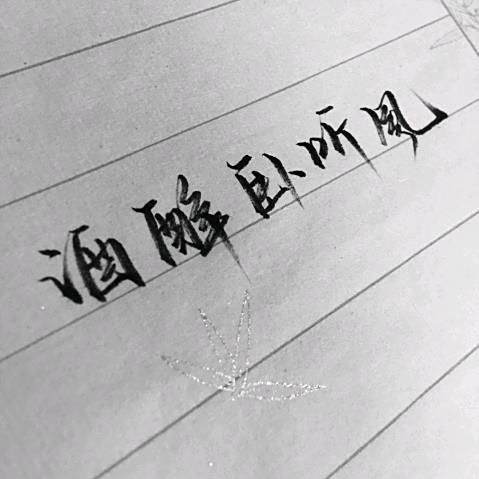 酒醉卧听风